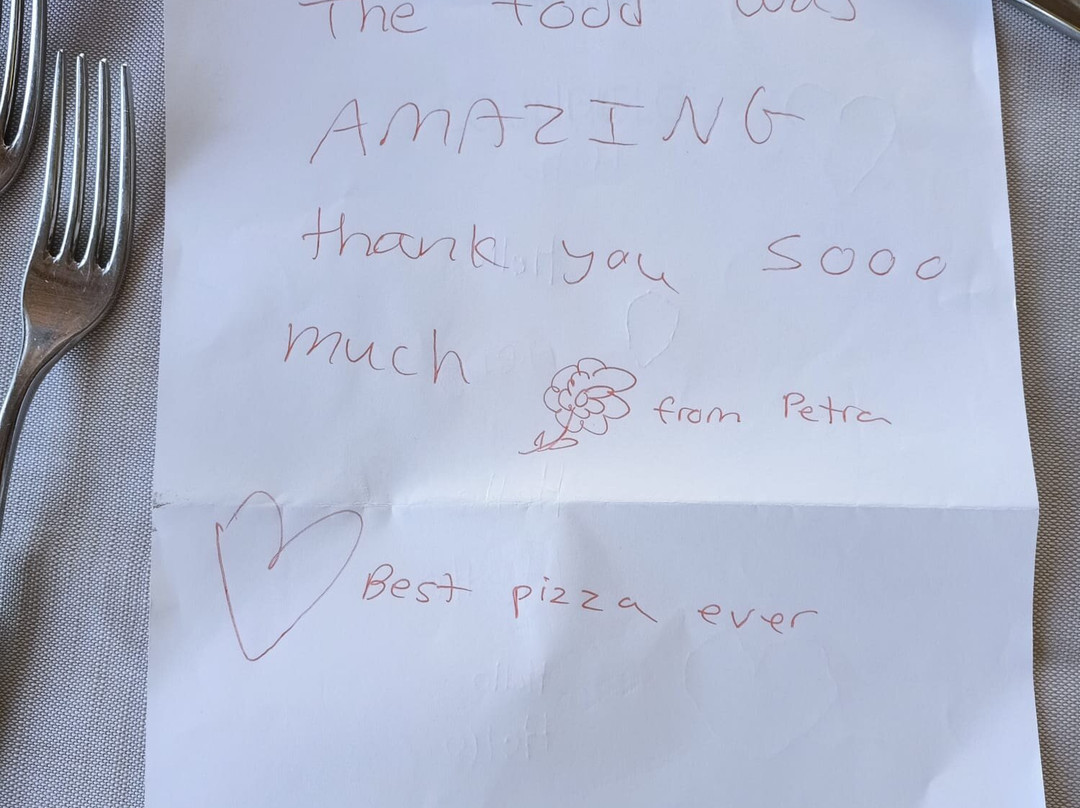 The food was
AMAZING
thank you sooo
much
from Petra
Best pizza ever